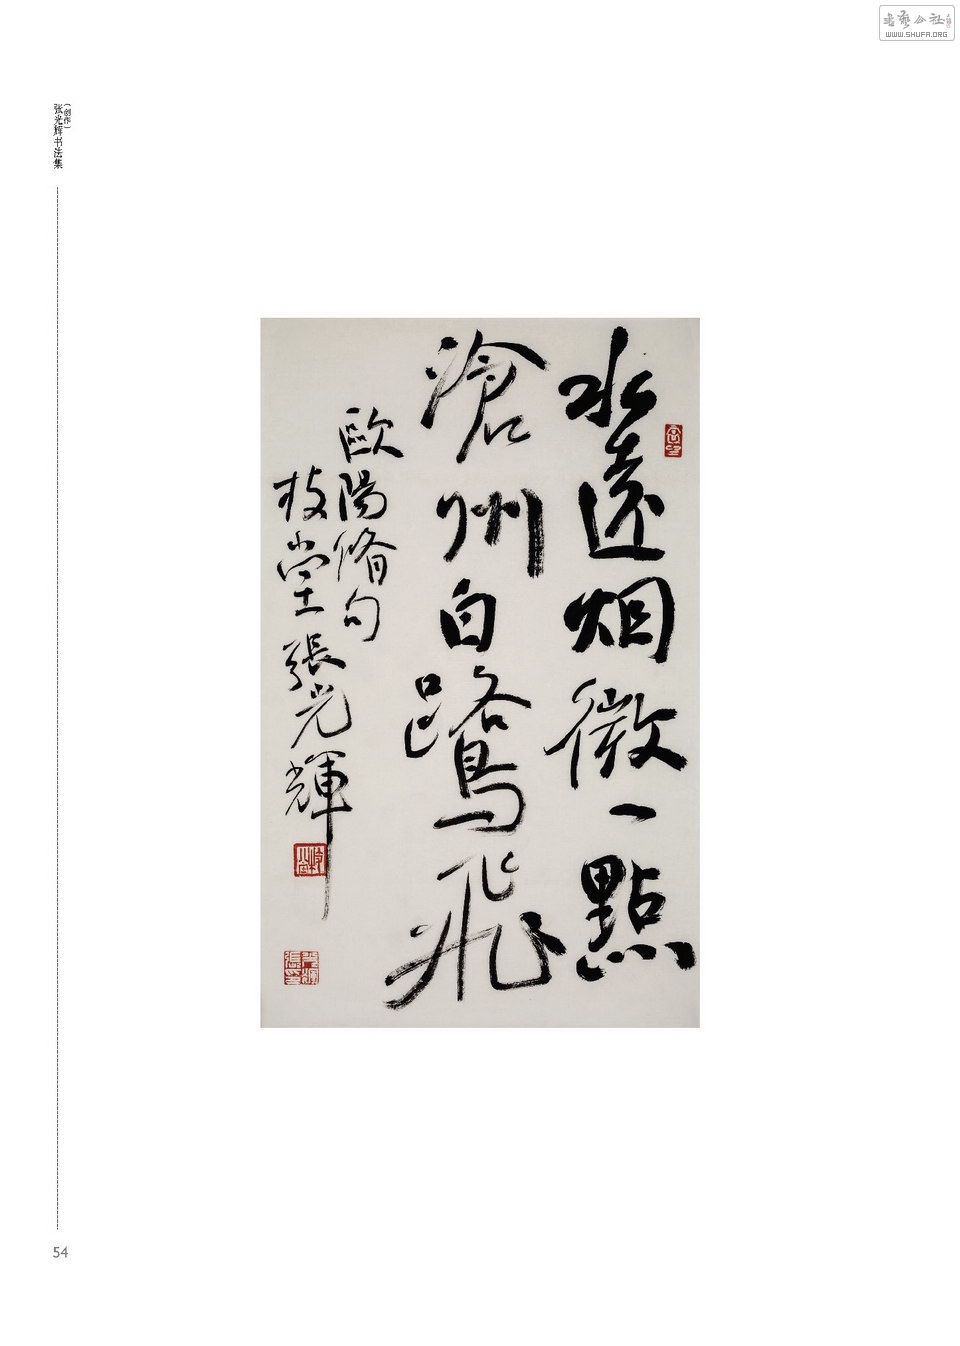 水遠烟微一點
滄州白鷺飛
歐陽脩句
枝堂張光輝
张光辉书法集
（创作）
54
书艺公社
WWW.SHUFA.ORG